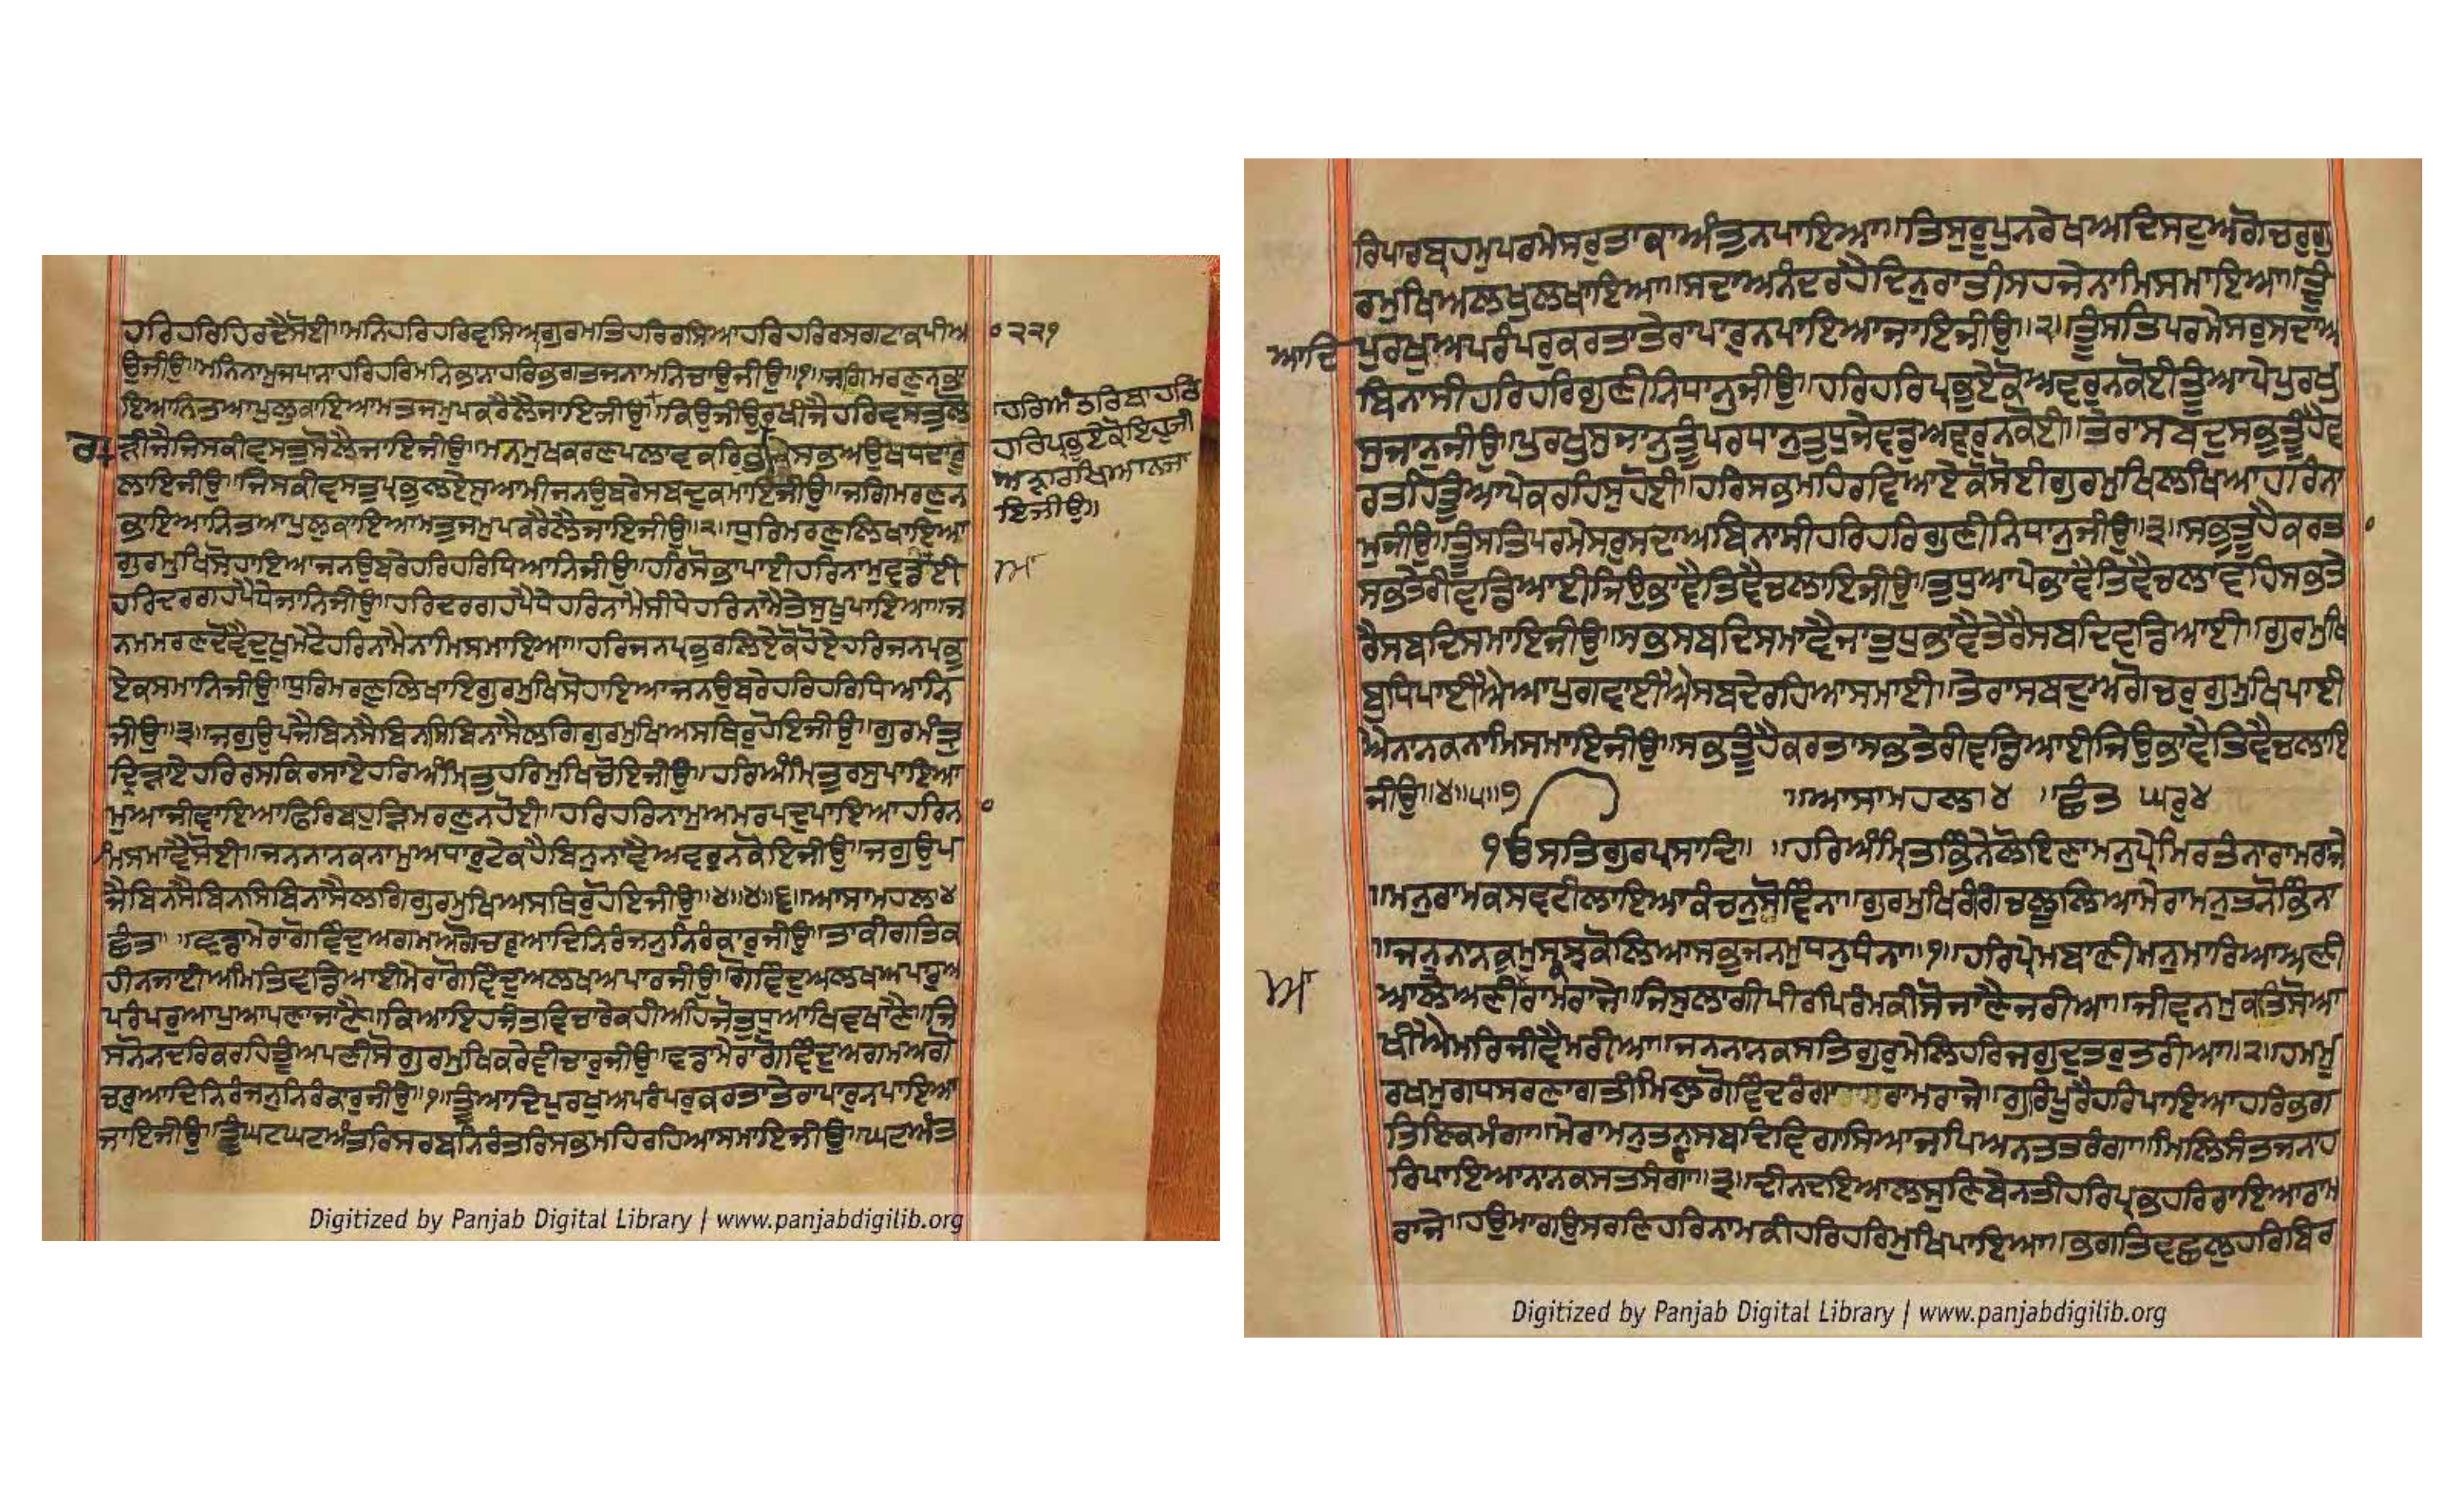 ਹਰਿਹਰਿਹਿਰਦੈਸੋਈ॥ਮਨਿਹਰਿਹਰਿਵਸਿਆਗੁਰਮਤਿਹਰਿਰਸਿਆਹਰਿਹਰਿਰਸਗਟਾਕਪੀਆ
੨੨੧
ਉਜੀਉ॥ਮਨਿਨਾਮੁਜਪਾਨਾਹਰਿਹਰਿਮਨਿਭਾਨਾਹਰਿਭਗਤਜਨਾਮਨਿਚਾਉਜੀਉ॥੧॥ਜਗਿਮਰਣੁਨਭਾ
ਇਆਨਿਤਆਪੁਲੁਕਾਇਆਮਤਜਮੁਪਕਰੈਲੈਜਾਇਜੀਉ॥ਕਿਉਜੀਉਰਖੀਜੈਹਰਿਵਸਤੁਲੋ
ੜੀਜੈਜਿਸਕੀਵਸਤੁਸੋਲੈਜਾਇਜੀਉ॥ਮਨਮੁਖਕਰਣਪਲਾਵਕਰਿਭਰਮੇਸਭਅਉਖਧਦਾਰੂ
ਲਾਇਜੀਉ॥ਜਿਸਕੀਵਸਤੁਪ੍ਰਭੁਲਏਸੁਆਮੀਜਨਉਬਰੇਸਬਦੁਕਮਾਇਜੀਉ॥ਜਗਿਮਰਣੁਨ
ਭਾਇਆਨਿਤਆਪੁਲੁਕਾਇਆਮਤਜਮੁਪਕਰੈਲੈਜਾਇਜੀਉ॥੨॥ਧੁਰਿਮਰਣੁਲਿਖਾਇਆ
ਗੁਰਮੁਖਿਸੋਹਾਇਆਜਨਉਬਰੇਹਰਿਹਰਿਧਿਆਨਿਜੀਉ॥ਹਰਿਸੋਭਾਪਾਈਹਰਿਨਾਮੁਵਡਿਆਈ
ਹਰਿਦਰਗਹਪੈਧੇਜਾਨਿਜੀਉ॥ਹਰਿਦਰਗਹਪੈਧੇਹਰਿਨਾਮੈਸੀਧੇਹਰਿਨਾਮੈਤੇਸੁਖੁਪਾਇਆ॥ਜ
ਨਮਮਰਣਦੋਵੈਦੁਖਮੇਟੇਹਰਿਨਾਮੈਨਾਮਿਸਮਾਇਆ॥ਹਰਿਜਨਪ੍ਰਭੁਰਲਿਏਕੋਹੋਏਹਰਿਜਨਪ੍ਰਭੁ
ਏਕਸਮਾਨਿਜੀਉ॥ਧੁਰਿਮਰਣੁਲਿਖਾਇਗੁਰਮੁਖਿਸੋਹਾਇਆਜਨਉਬਰੇਹਰਿਹਰਿਧਿਆਨਿ
ਜੀਉ॥੩॥ਜਗੁਉਪਜੈਬਿਨਸੈਬਿਨਸਿਬਿਨਾਸੈਲਗਿਗੁਰਮੁਖਿਅਸਥਿਰੁਹੋਇਜੀਉ॥ਗੁਰਮੰਤ੍ਰੁ
ਦ੍ਰਿੜਾਏਹਰਿਰਸਕਿਰਸਾਏਹਰਿਅੰਮ੍ਰਿਤੁਹਰਿਮੁਖਿਚੋਇਜੀਉ॥ਹਰਿਅੰਮ੍ਰਿਤੁਰਸੁਪਾਇਆ
ਮੁਆਜੀਵਾਇਆਫਿਰਿਬਹੁੜਿਮਰਣੁਨਹੋਈ॥ਹਰਿਹਰਿਨਾਮੁਅਮਰਪਦੁਪਾਇਆਹਰਿਨਾ
ਮਿਸਮਾਵੈਸੋਈ॥ਜਨਨਾਨਕਨਾਮੁਅਧਾਰੁਟੇਕਹੈਬਿਨੁਨਾਵੈਅਵਰੁਨਕੋਇਜੀਉ॥ਜਗੁਉਪ
ਜੈਬਿਨਸੈਬਿਨਸਿਬਿਨਾਸੈਲਗਿਗੁਰਮੁਖਿਅਸਥਿਰੁਹੋਇਜੀਉ॥੪॥੪॥੬॥ਆਸਾਮਹਲਾ੪
ਛੰਤ॥ਵਡਾਮੇਰਾਗੋਵਿੰਦੁਅਗਮਅਗੋਚਰੁਆਦਿਨਿਰੰਜਨੁਨਿਰੰਕਾਰੁਜੀਉ॥ਤਾਕੀਗਤਿਕ
ਹੀਨਜਾਈਅਮਿਤਿਵਡਿਆਈਮੇਰਾਗੋਵਿੰਦੁਅਲਖਅਪਾਰਜੀਉ॥ਗੋਵਿੰਦੁਅਲਖਅਪਾਰੁਅ
ਪਰੰਪਰੁਆਪੁਆਪਣਾਜਾਣੈ॥ਕਿਆਇਹਜੰਤਵਿਚਾਰੇਕਹੀਅਹਿਜੋਤੁਧੁਆਖਿਵਖਾਣੈ॥ਜਿ
ਸਨੋਨਦਰਿਕਰਹਿਤੂੰਅਪਣੀਸੋਗੁਰਮੁਖਿਕਰੇਵੀਚਾਰੁਜੀਉ॥ਵਡਾਮੇਰਾਗੋਵਿੰਦੁਅਗਮਅਗੋ
ਚਰੁਆਦਿਨਿਰੰਜਨੁਨਿਰੰਕਾਰੁਜੀਉ॥੧॥ਤੂੰਆਦਿਪੁਰਖੁਅਪਰੰਪਰੁਕਰਤਾਤੇਰਾਪਾਰੁਨਪਾਇਆ
ਜਾਇਜੀਉ॥ਤੂੰਘਟਘਟਅੰਤਰਿਸਰਬਨਿਰੰਤਰਿਸਭਮਹਿਰਹਿਆਸਮਾਇਜੀਉ॥ਘਟਅੰਤ
Digitized by Panjab Digital Library | www.panjabdigilib.org
ਰਿਪਾਰਬ੍ਰਹਮੁਪਰਮੇਸਰੁਤਾਕਾਅੰਤੁਨਪਾਇਆ॥ਤਿਸੁਰੂਪੁਨਰੇਖਅਦਿਸਟੁਅਗੋਚਰੁਗੁ
ਰਮੁਖਿਅਲਖੁਲਖਾਇਆ॥ਸਦਾਅਨੰਦਰਹੈਦਿਨੁਰਾਤੀਸਹਜੇਨਾਮਿਸਮਾਇਆ॥ਤੂੰ
ਆਦਿ
ਪੁਰਖੁਅਪਰੰਪਰੁਕਰਤਾਤੇਰਾਪਾਰੁਨਪਾਇਆਜਾਇਜੀਉ॥੨॥ਤੂੰਸਤਿਪਰਮੇਸਰੁਸਦਾਅ
ਬਿਨਾਸੀਹਰਿਹਰਿਗੁਣੀਨਿਧਾਨੁਜੀਉ॥ਹਰਿਹਰਿਪ੍ਰਭੁਏਕੋਅਵਰੁਨਕੋਈਤੂੰਆਪੇਪੁਰਖੁ
ਸੁਜਾਨੁਜੀਉ॥ਪੁਰਖੁਸੁਜਾਨੁਤੂੰਪਰਧਾਨੁਤੁਧੁਜੇਵਡੁਅਵਰੁਨਕੋਈ॥ਤੇਰਾਸਬਦੁਸਭੁਤੂੰਹੈਵ
ਰਤਹਿਤੂੰਆਪੇਕਰਹਿਸੁਹੋਈ॥ਹਰਿਸਭਮਹਿਰਵਿਆਏਕੋਸੋਈਗੁਰਮੁਖਿਲਖਿਆਹਰਿਨਾ
ਮੁਜੀਉ॥ਤੂੰਸਤਿਪਰਮੇਸਰੁਸਦਾਅਬਿਨਾਸੀਹਰਿਹਰਿਗੁਣੀਨਿਧਾਨੁਜੀਉ॥੩॥ਸਭੁਤੂੰਹੈਕਰਤਾ
ਸਭਤੇਰੀਵਡਿਆਈਜਿਉਭਾਵੈਤਿਵੈਚਲਾਇਜੀਉ॥ਤੁਧੁਆਪੇਭਾਵੈਤਿਵੈਚਲਾਵਹਿਸਭਤੇ
ਰੈਸਬਦਿਸਮਾਇਜੀਉ॥ਸਭਸਬਦਿਸਮਾਵੈਜਾਤੁਧੁਭਾਵੈਤੇਰੈਸਬਦਿਵਡਿਆਈ॥ਗੁਰਮੁਖਿ
ਬੁਧਿਪਾਈਐਆਪੁਗਵਾਈਐਸਬਦੇਰਹਿਆਸਮਾਈ॥ਤੇਰਾਸਬਦੁਅਗੋਚਰੁਗੁਰਮੁਖਿਪਾਈ
ਐਨਾਨਕਨਾਮਿਸਮਾਇਜੀਉ॥ਸਭੁਤੂੰਹੈਕਰਤਾਸਭਤੇਰੀਵਡਿਆਈਜਿਉਭਾਵੈਤਿਵੈਚਲਾਇ
ਜੀਉ॥੪॥੫॥੭ ॥ਆਸਾਮਹਲਾ੪ ॥ਛੰਤ ਘਰੁ੪
ੴਸਤਿਗੁਰਪ੍ਰਸਾਦਿ॥ ॥ਹਰਿਅੰਮ੍ਰਿਤਭਿੰਨੇਲੋਇਣਾਮਨੁਪ੍ਰੇਮਿਰਤੰਨਾਰਾਮਰਾਜੇ
॥ਮਨੁਰਾਮਕਸਵਟੀਲਾਇਆਕੰਚਨੁਸੋਵਿੰਨਾ॥ਗੁਰਮੁਖਿਰੰਗਿਚਲੂਲਿਆਮੇਰਾਮਨੁਤਨੋਭਿੰਨਾ
॥ਜਨੁਨਾਨਕੁਮੁਸਕਿਝਕੋਲਿਆਸਭੁਜਨਮੁਧਨੁਧੰਨਾ॥੧॥ਹਰਿਪ੍ਰੇਮਬਾਣੀਮਨੁਮਾਰਿਆਅਣੀ
ਆਲੇਅਣੀਰਾਮਰਾਜੇ॥ਜਿਸੁਲਾਗੀਪੀਰਪਿਰੰਮਕੀਸੋਜਾਣੈਜਰੀਆ॥ਜੀਵਨਮੁਕਤਿਸੋਆ
ਖੀਐਮਰਿਜੀਵੈਮਰੀਆ॥ਜਨਨਾਨਕਸਤਿਗੁਰੁਮੇਲਿਹਰਿਜਗੁਦੁਤਰੁਤਰੀਆ॥੨॥ਹਮਮੂ
ਰਖਮੁਗਧਸਰਣਾਗਤੀਮਿਲੁਗੋਵਿੰਦਰੰਗਾਰਾਮਰਾਜੇ॥ਗੁਰਿਪੂਰੈਹਰਿਪਾਇਆਹਰਿਭਗ
ਤਿਇਕਮੰਗਾ॥ਮੇਰਾਮਨੁਤਨੁਸਬਦਿਵਿਗਾਸਿਆਜਪਿਅਨਤਤਰੰਗਾ॥ਮਿਲਿਸੰਤਜਨਾਹ
ਰਿਪਾਇਆਨਾਨਕਸਤਸੰਗਾ॥੩॥ਦੀਨਦਇਆਲਸੁਣਿਬੇਨਤੀਹਰਿਪ੍ਰਭਹਰਿਰਾਇਆਰਾਮ
ਰਾਜੇ॥ਹਉਮਾਗਉਸਰਣਿਹਰਿਨਾਮਕੀਹਰਿਹਰਿਮੁਖਿਪਾਇਆ॥ਭਗਤਿਵਛਲੁਹਰਿਬਿਰ
Digitized by Panjab Digital Library | www.panjabdigilib.org